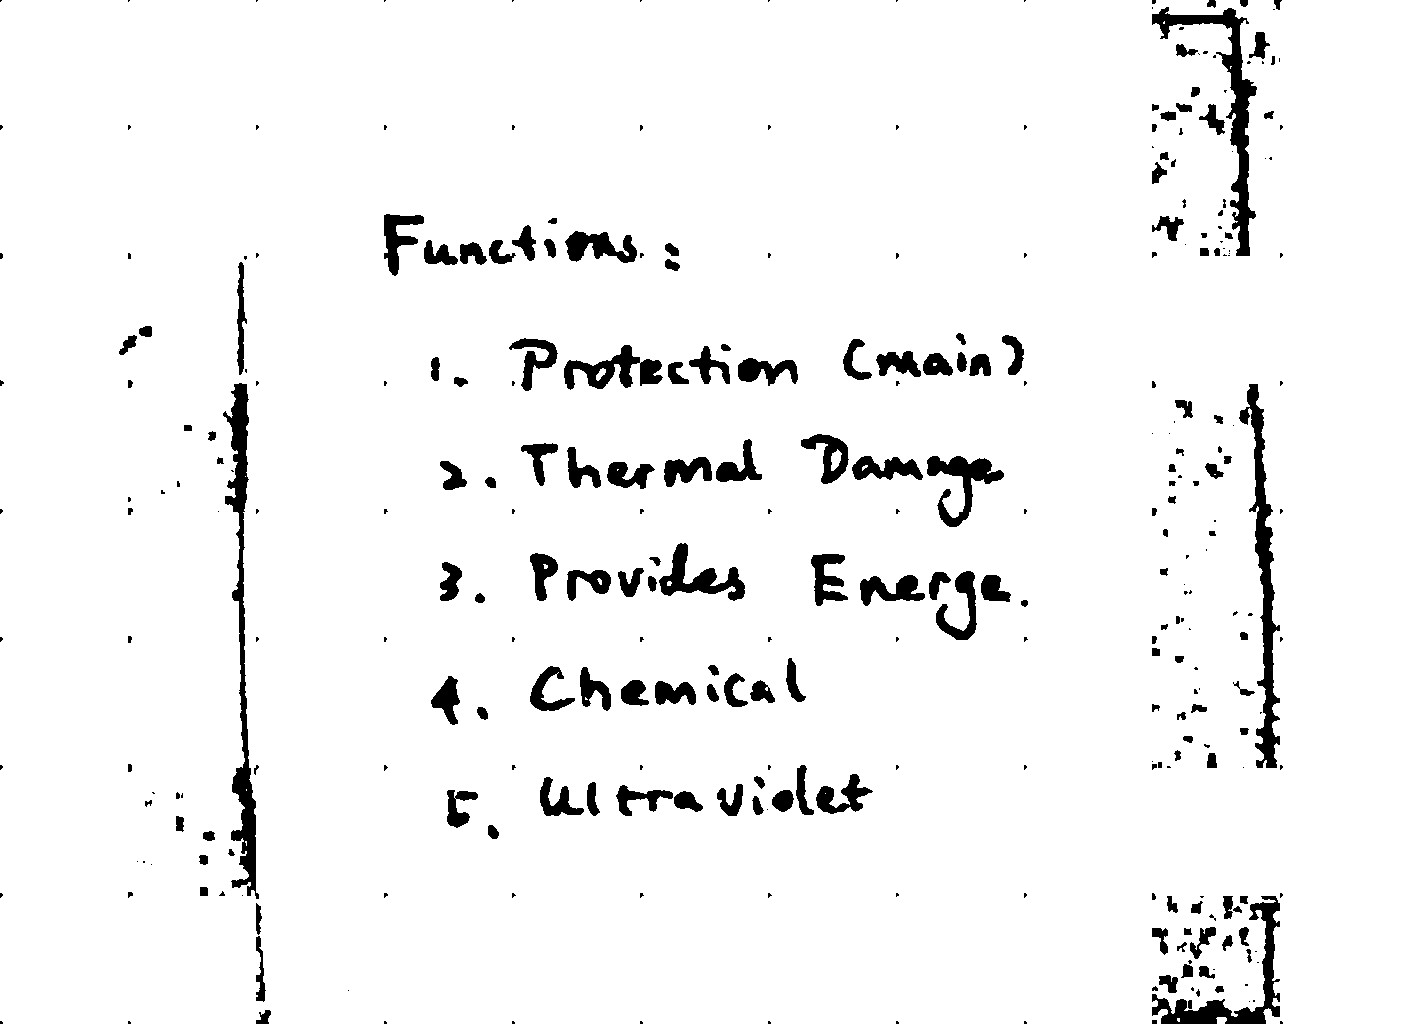 Functions:
1. Protection (main)
2. Thermal Damage
3. Provides Energe.
4. Chemical
5. Ultraviolet